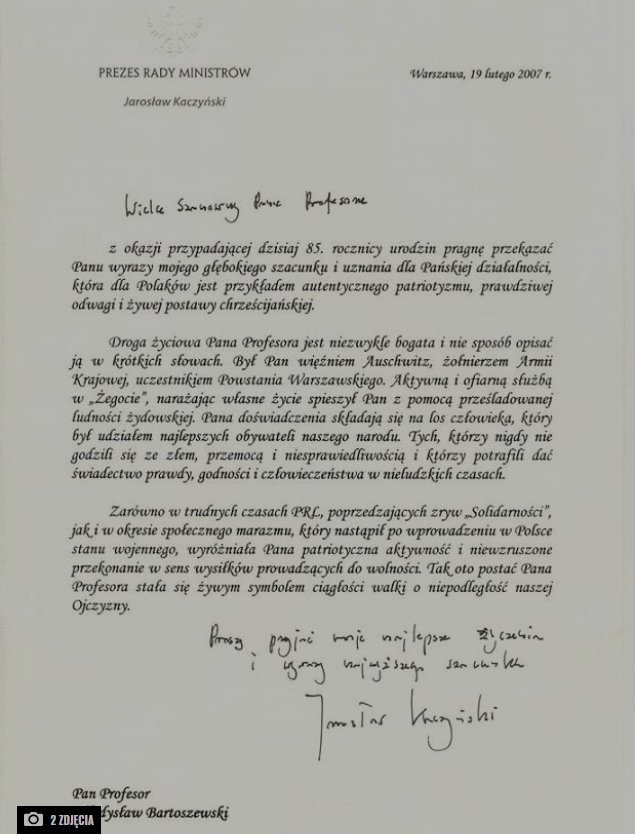 PREZES RADY MINISTRÓW
Jarosław Kaczyński
Warszawa, 19 lutego 2007 r.
Wielce Szanowny Panie Profesorze
z okazji przypadającej dzisiaj 85. rocznicy urodzin pragnę przekazać
Panu wyrazy mojego głębokiego szacunku i uznania dla Pańskiej działalności,
która dla Polaków jest przykładem autentycznego patriotyzmu, prawdziwej
odwagi i żywej postawy chrześcijańskiej.
Droga życiowa Pana Profesora jest niezwykle bogata i nie sposób opisać
ją w krótkich słowach. Był Pan więźniem Auschwitz, żołnierzem Armii
Krajowej, uczestnikiem Powstania Warszawskiego. Aktywną i ofiarną służbą
w „Żegocie”, narażając własne życie spieszył Pan z pomocą prześladowanej
ludności żydowskiej. Pana doświadczenia składają się na los człowieka, który
był udziałem najlepszych obywateli naszego narodu. Tych, którzy nigdy nie
godzili się ze złem, przemocą i niesprawiedliwością i którzy potrafili dać
świadectwo prawdy, godności i człowieczeństwa w nieludzkich czasach.
Zarówno w trudnych czasach PRL, poprzedzających zryw „Solidarności”,
jak i w okresie społecznego marazmu, który nastąpił po wprowadzeniu w Polsce
stanu wojennego, wyróżniała Pana patriotyczna aktywność i niewzruszone
przekonanie w sens wysiłków prowadzących do wolności. Tak oto postać Pana
Profesora stała się żywym symbolem ciągłości walki o niepodległość naszej
Ojczyzny.
Proszę przyjąć moje najlepsze życzenia
i wyrazy najwyższego szacunku
Jarosław Kaczyński
Pan Profesor
dysław Bartoszewski
2 ZDJĘCIA